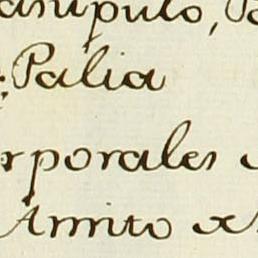 anipulo,
Palia
rporales
Amito